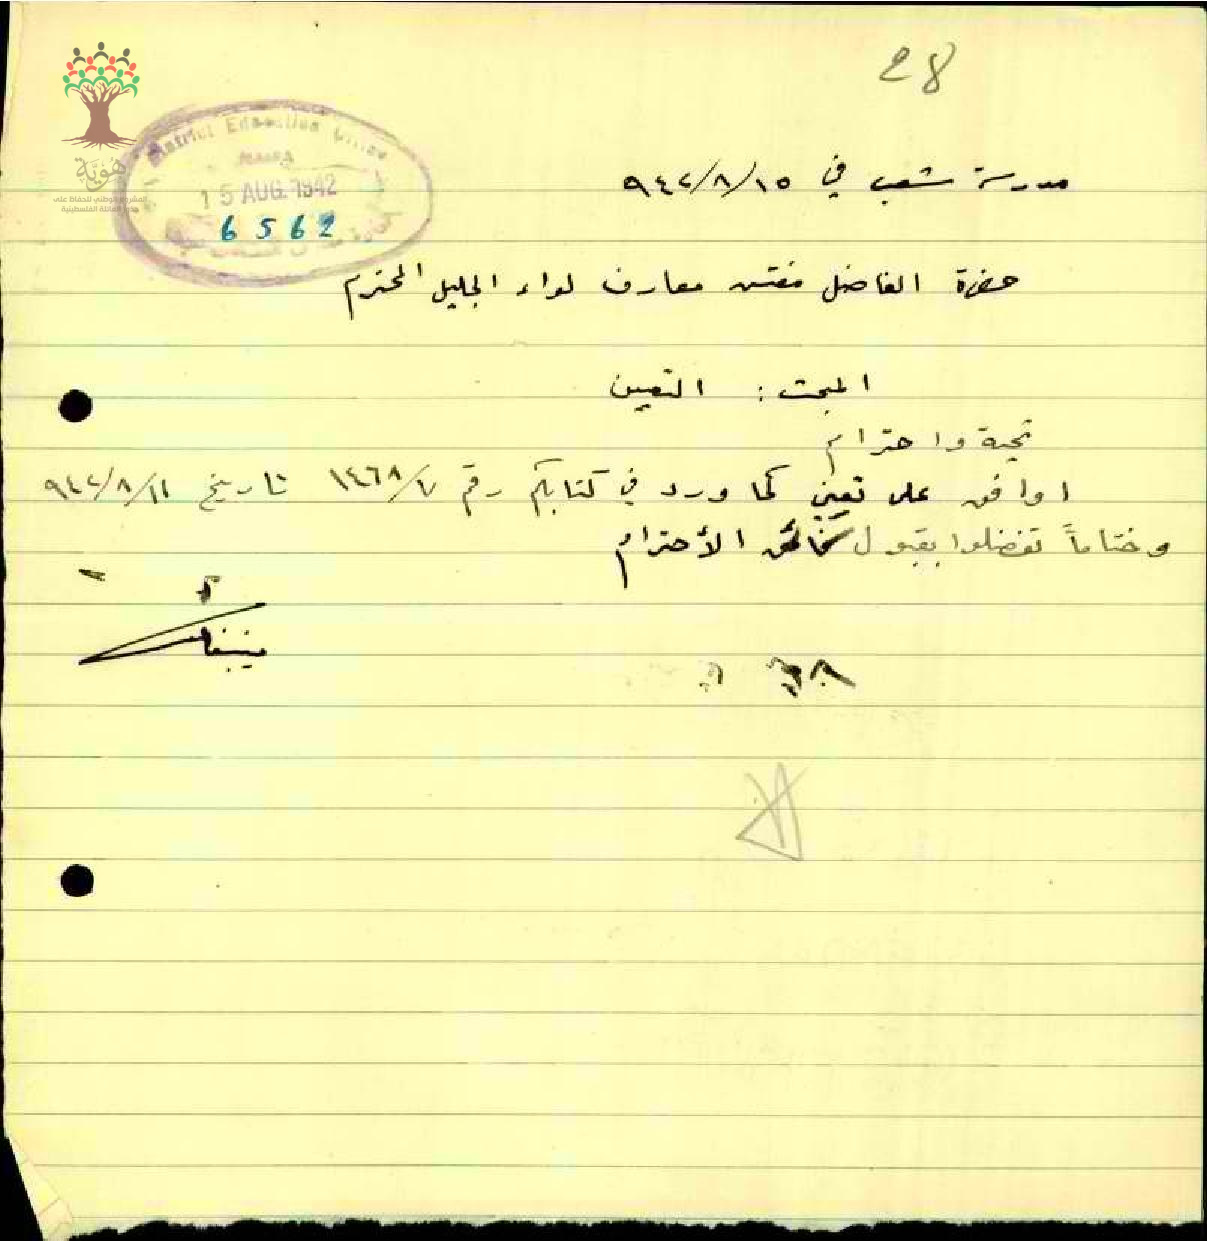 28
District Education Office
15 AUG. 1942
6562
هَويَّة
المشروع الوطني للحفاظ على
العائلة الفلسطينية
مدرسة شعب في ١٥/٨/٩٤٢
حضرة الفاضل مفتش معارف لواء الجليل المحترم
المبحث : التعيين
تحية واحترام
اوافق على تعييني كما ورد في كتابكم رقم ١٤٦٨/٧ تاريخ ١١/٨/٩٤٢
وختاماً تفضلوا بقبول فائق الأحترام